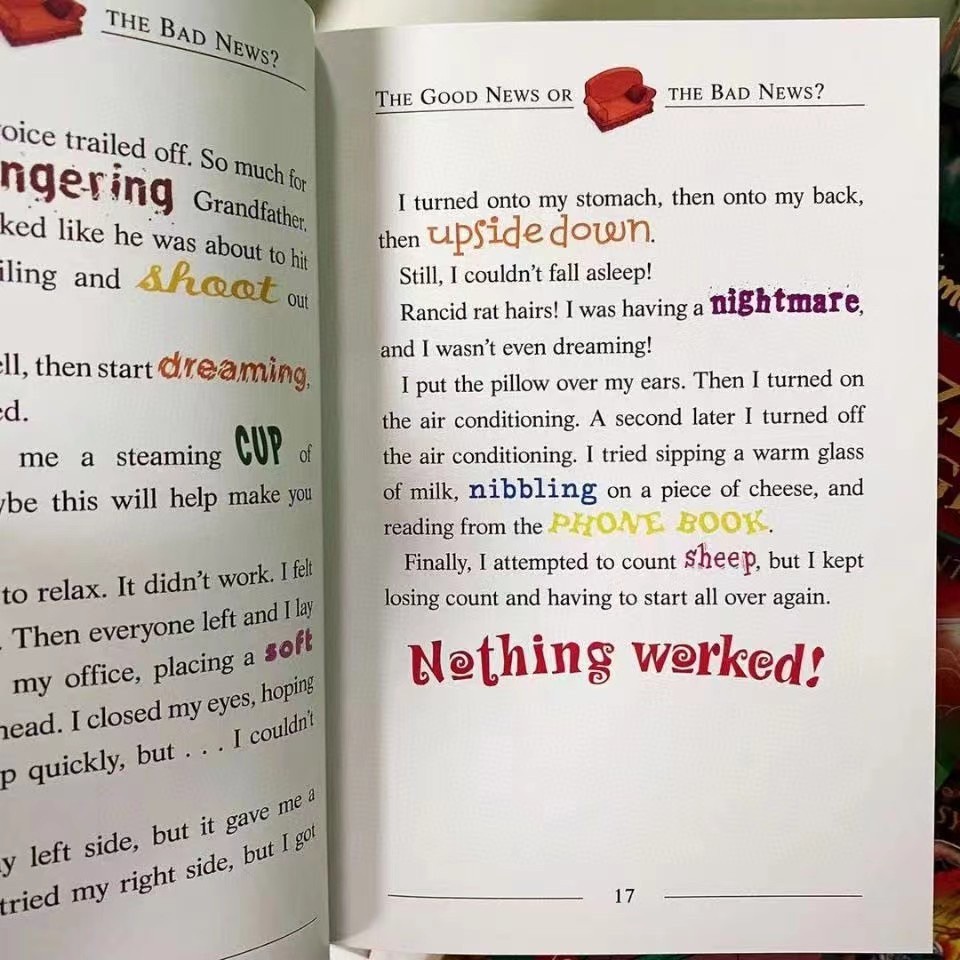 THE BAD NEWS?
oice trailed off. So much for
ngering Grandfather.
ked like he was about to hit
iling and shoot out
ell, then start dreaming,
ed.
me a steaming CUP of
ybe this will help make you
to relax. It didn't work. I felt
. Then everyone left and I lay
my office, placing a soft
head. I closed my eyes, hoping
p quickly, but . . . I couldn't
y left side, but it gave me a
tried my right side, but I got
THE GOOD NEWS OR THE BAD NEWS?
I turned onto my stomach, then onto my back,
then upside down.
Still, I couldn't fall asleep!
Rancid rat hairs! I was having a nightmare,
and I wasn't even dreaming!
I put the pillow over my ears. Then I turned on
the air conditioning. A second later I turned off
the air conditioning. I tried sipping a warm glass
of milk, nibbling on a piece of cheese, and
reading from the PHONE BOOK.
Finally, I attempted to count sheep, but I kept
losing count and having to start all over again.
Nothing worked!
17